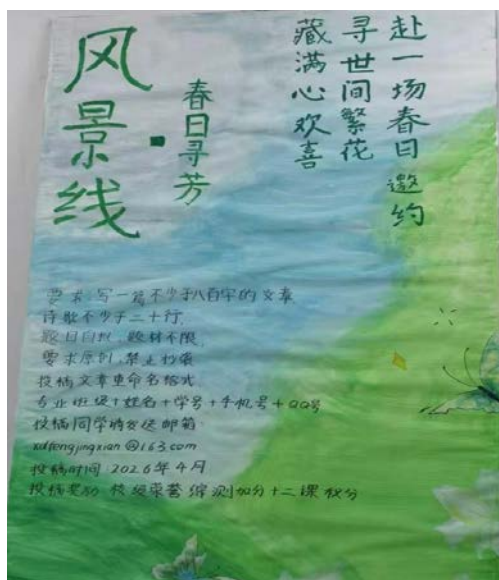 风景线·春日寻芳
赴一场春日邀约
寻世间繁花
藏满心欢喜
要求:写一篇不少于八百字的文章
诗歌不少于二十行
题目自拟,题材不限
要求原创,禁止抄袭
投稿文章重命名格式
专业班级+姓名+学号+手机号+QQ号
投稿同学请发送邮箱
xdfengjingxian@163.com
投稿时间:2026年4月
投稿奖励:校级荣誉 综测加分+二课积分